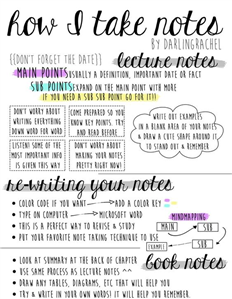 how I take notes
BY DARLINGRACHEL
((DON'T FORGET THE DATE)) lecture notes
MAIN POINTS USUALLY A DEFINITION, IMPORTANT DATE OR FACT
SUB POINTS EXPAND ON THE MAIN POINT WITH MORE
IF YOU NEED A SUB SUB POINT GO FOR IT!!
DON'T WORRY ABOUT
WRITING EVERYTHING
DOWN WORD FOR WORD
COME PREPARED SO YOU
KNOW KEY POINTS. TRY
AND READ BEFORE
LISTEN! SOME OF THE
MOST IMPORTANT INFO
IS GIVEN THIS WAY
DON'T WORRY ABOUT
MAKING YOUR NOTES
PRETTY RIGHT NOW!
WRITE OUT EXAMPLES
IN A BLANK AREA OF YOUR NOTES
& DRAW A CLOUD SHAPE AROUND IT
TO STAND OUT & REMEMBER
re-writing your notes
• COLOR CODE IF YOU WANT → ADD A COLOR KEY
• TYPE ON COMPUTER → MICROSOFT WORD
• THIS IS A PERFECT WAY TO REVISE & STUDY
• PUT YOUR FAVORITE NOTE TAKING TECHNIQUE TO USE
MINDMAPPING
MAIN
SUB
SUB
EXAMPLE
book notes
• LOOK AT SUMMARY AT THE BACK OF CHAPTER
• USE SAME PROCESS AS LECTURE NOTES ^^
• DRAW ANY TABLES, DIAGRAMS, ETC THAT WILL HELP YOU
• TRY & WRITE IN YOUR OWN WORDS IT WILL HELP YOU REMEMBER.